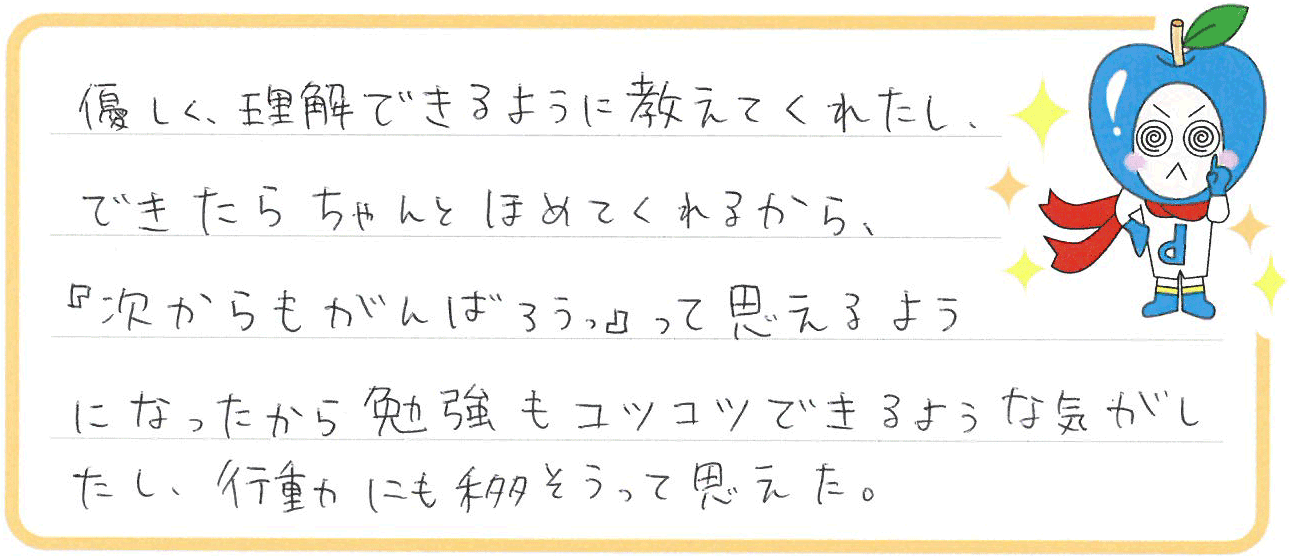 優しく、理解できるように教えてくれたし、
できたらちゃんとほめてくれるから、
『次からもがんばろうっ』って思えるよう
になったから勉強もコツコツできるような気がし
たし、行動にも移そうって思えた。